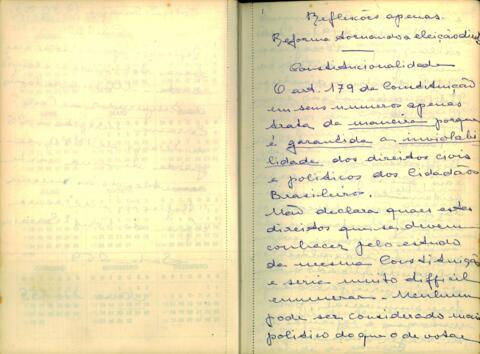 Reflexões apenas.
Reforma tornando a eleição dire
Constitucionalidade
O art. 179 da Constituição
em seus numeros apenas
trata da maneira porque
é garantida a inviolabi-
lidade dos direitos civis
e politicos dos Cidadãos
Brasileiros.
Não declara quais estes
direitos que se devem
conhecer pelo estudo
da mesma Constituição
e seria muito difficil
enumerar - Nenhum
pode ser considerado mais
politico do que o de votar